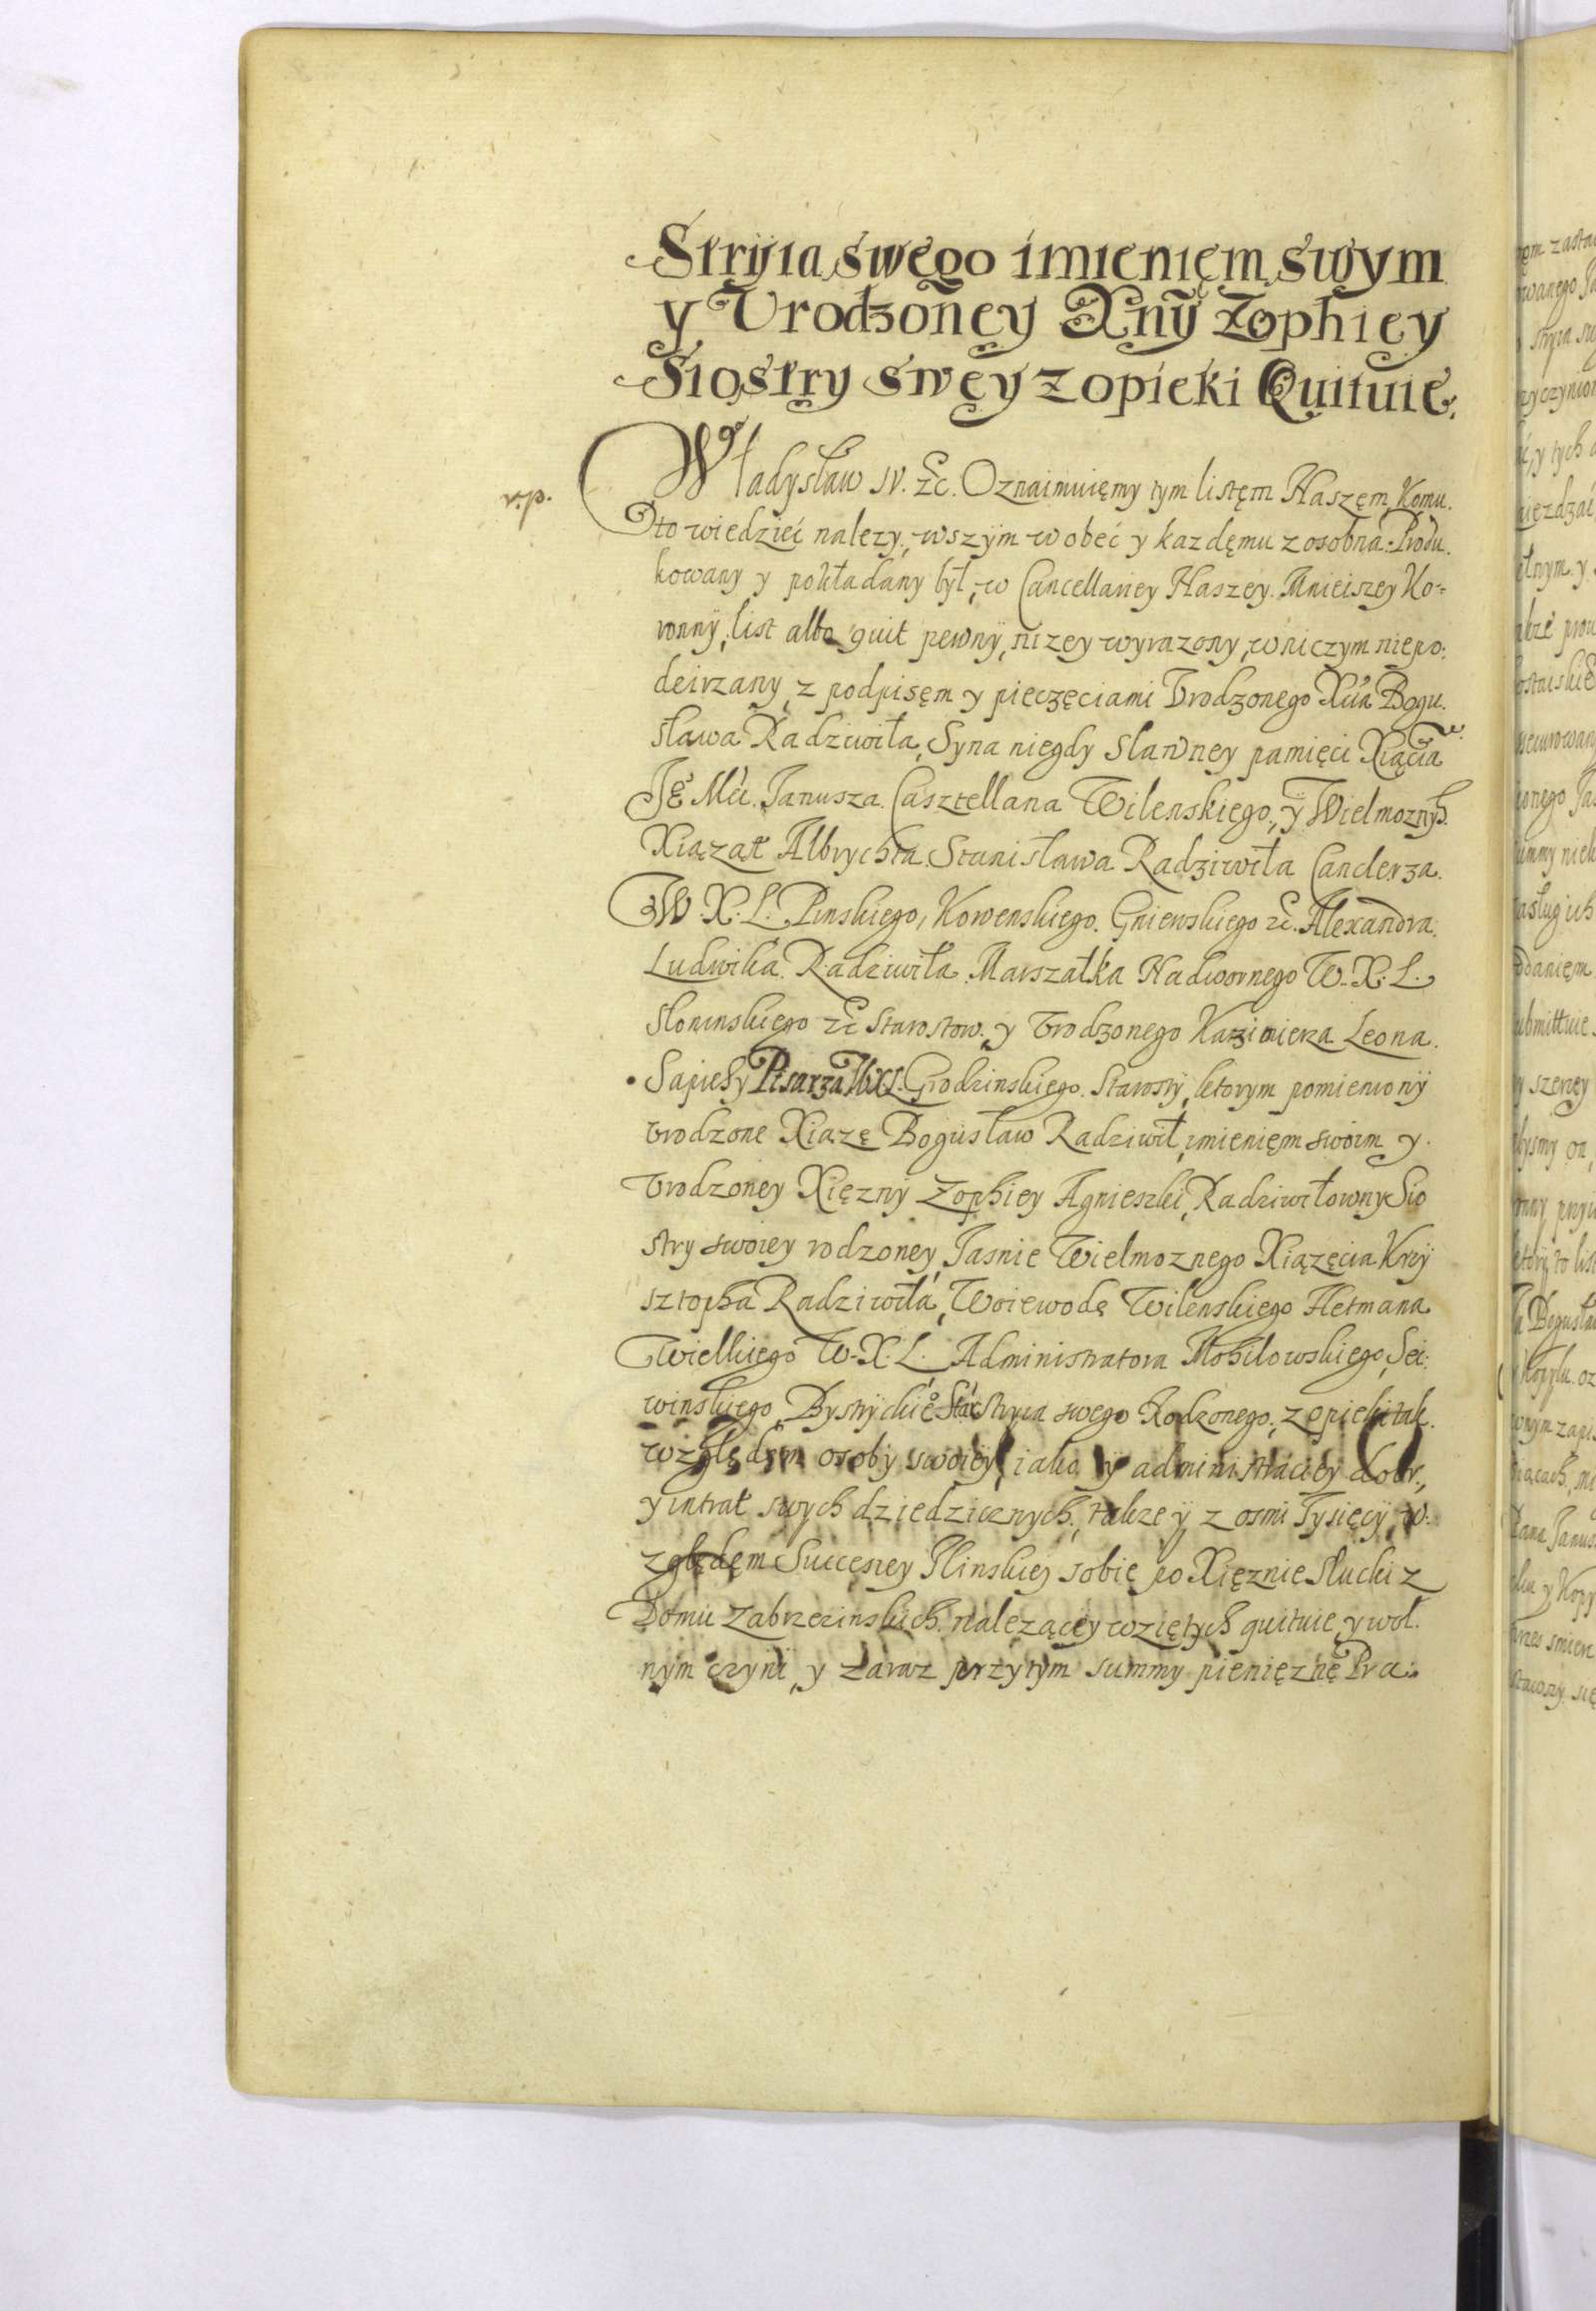 Stryia swego imienięm swym
y Vrodzoney Xny Zophiey
Siostry swęy z opieki Quituie.
Władysław IV. &c. Oznaimuięmy tym listęm Naszęm, Komu.
to wiedzieć nalezy, wszÿm wobec y kazdęmu zosobna. Produ.
kowany y pokładany był, w Cancellariey Naszey. Mnieiszey Ko-
ronnÿ, list albo quit pewnÿ, nizey wyrazony, w niczym niepo:
deirzany, z podpisęm y pieczęciami Vrodzonego Xcia Bogu.
sława Radziwiła, Syna niegdy sławney pamięci Xiącia
Je° Mci. Janusza. Casztellana Wilenskiego, ÿ Wielmoznych.
Xiąząt Albrychta Stanisława Radziwiła Canclerza.
W. X. L. Pinskiego, Kowenskiego. Gniewskiego &c. Alexandra.
Ludwika Radziwiła Marszałka Nadwornego W. X. L.
Słonimskiego &c Starostow. y Vrodzonego Kazimierza Leona.
Sapiehy Pisarza WXL. Grodzinskiego. Starosty, ktorym pomienionÿ
Vrodzone Xiązę Bogusław Radziwił, imienięm swoim y.
Vrodzoney Xięzny Zophiey Agnieszki, Radziwiłowny Sio
stry swoiey rodzoney, Jasnie Wielmoznego Xiązęcia Krzÿ
sztopha Radziwiła, Woiewodę Wilenskiego Hetmana
Wielkiego W. X. L. Administratora Mohilowskiego, Sei:
winskiego, Bystryckie° Star Stryia swego Rodzonego, z opieki tak.
względęm osoby swoiey, iako ÿ administraciey dobr.,
y intrat swych dziedzicznych, takze ÿ z osmi Tysięcÿ, w.
zględęm Succesiey Ilinskiej sobie po Xięznie Słucki z
Domu Zabrzezinskich. nalezącey wziętych quituie, y wol.
nym czyni, y zaraz przytym summy pienięznę Pra: